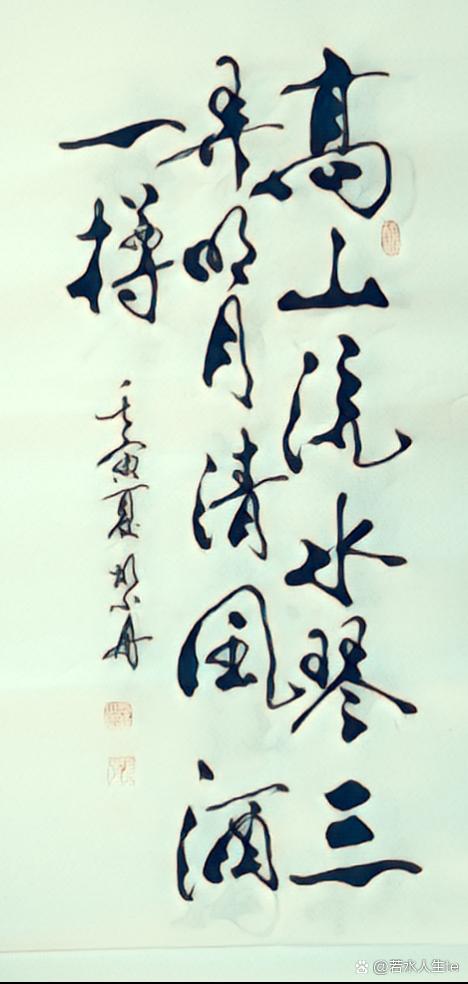 高山流水琴三
弄明月清風酒
一樽
壬寅夏 小丹
@若水人生le